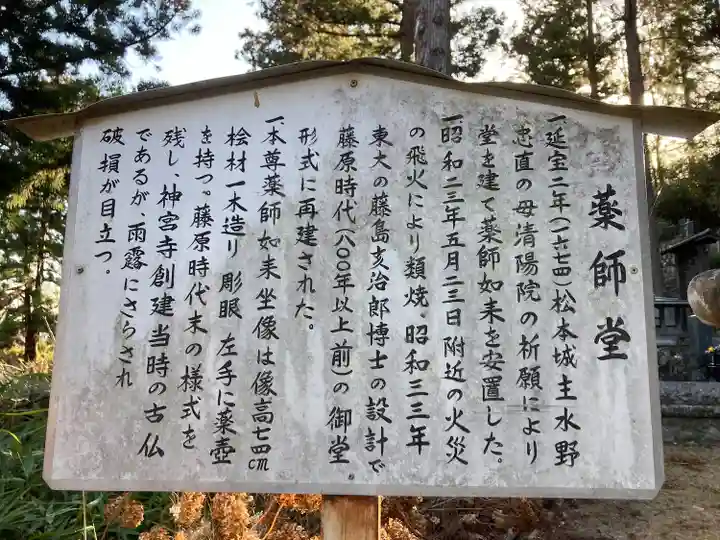 薬師堂
一延宝二年(一六七四)松本城主水野
忠直の母清陽院の祈願により
堂を建て薬師如来を安置した。
一昭和二三年五月二三日附近の火災
の飛火により類焼、昭和三三年
東大の藤島亥治郎博士の設計で
藤原時代(八〇〇年以上前)の御堂
形式に再建された。
一本尊薬師如来坐像は像高七四㎝
桧材一木造り彫眼 左手に薬壺
を持つ。藤原時代末の様式を
残し、神宮寺創建当時の古仏
であるが、雨露にさらされ
破損が目立つ。